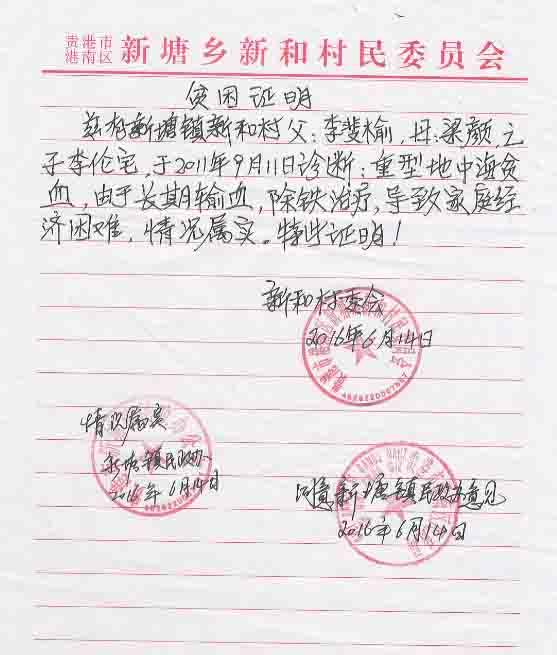 贵港市
港南区 新塘乡新和村民委员会
贫困证明
兹有新塘镇新和村父:李斐榆,母:梁颜,之
子李伦宅,于2011年9月11日诊断:重型地中海贫
血,由于长期输血,除铁治疗,导致家庭经
济困难,情况属实。特此证明!
新和村委会
2016年6月14日
情况属实
新塘镇民政办
2016年6月14日
同意新塘镇民政办意见
2016年6月14日